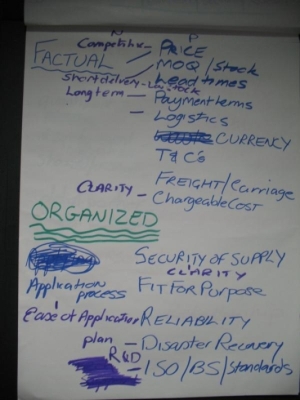 N P
Competitive - PRICE
FACTUAL MOQ / Stock
Short delivery - Lead times
Low stock
Long term - Payment terms
- Logistics
CURRENCY
T&C's
FREIGHT/Carriage
CLARITY - Chargeable Cost
ORGANIZED
SECURITY OF SUPPLY
CLARITY
Application FIT FOR PURPOSE
process
Ease of Application RELIABILITY
plan - Disaster Recovery
R&D - ISO/BS/Standards